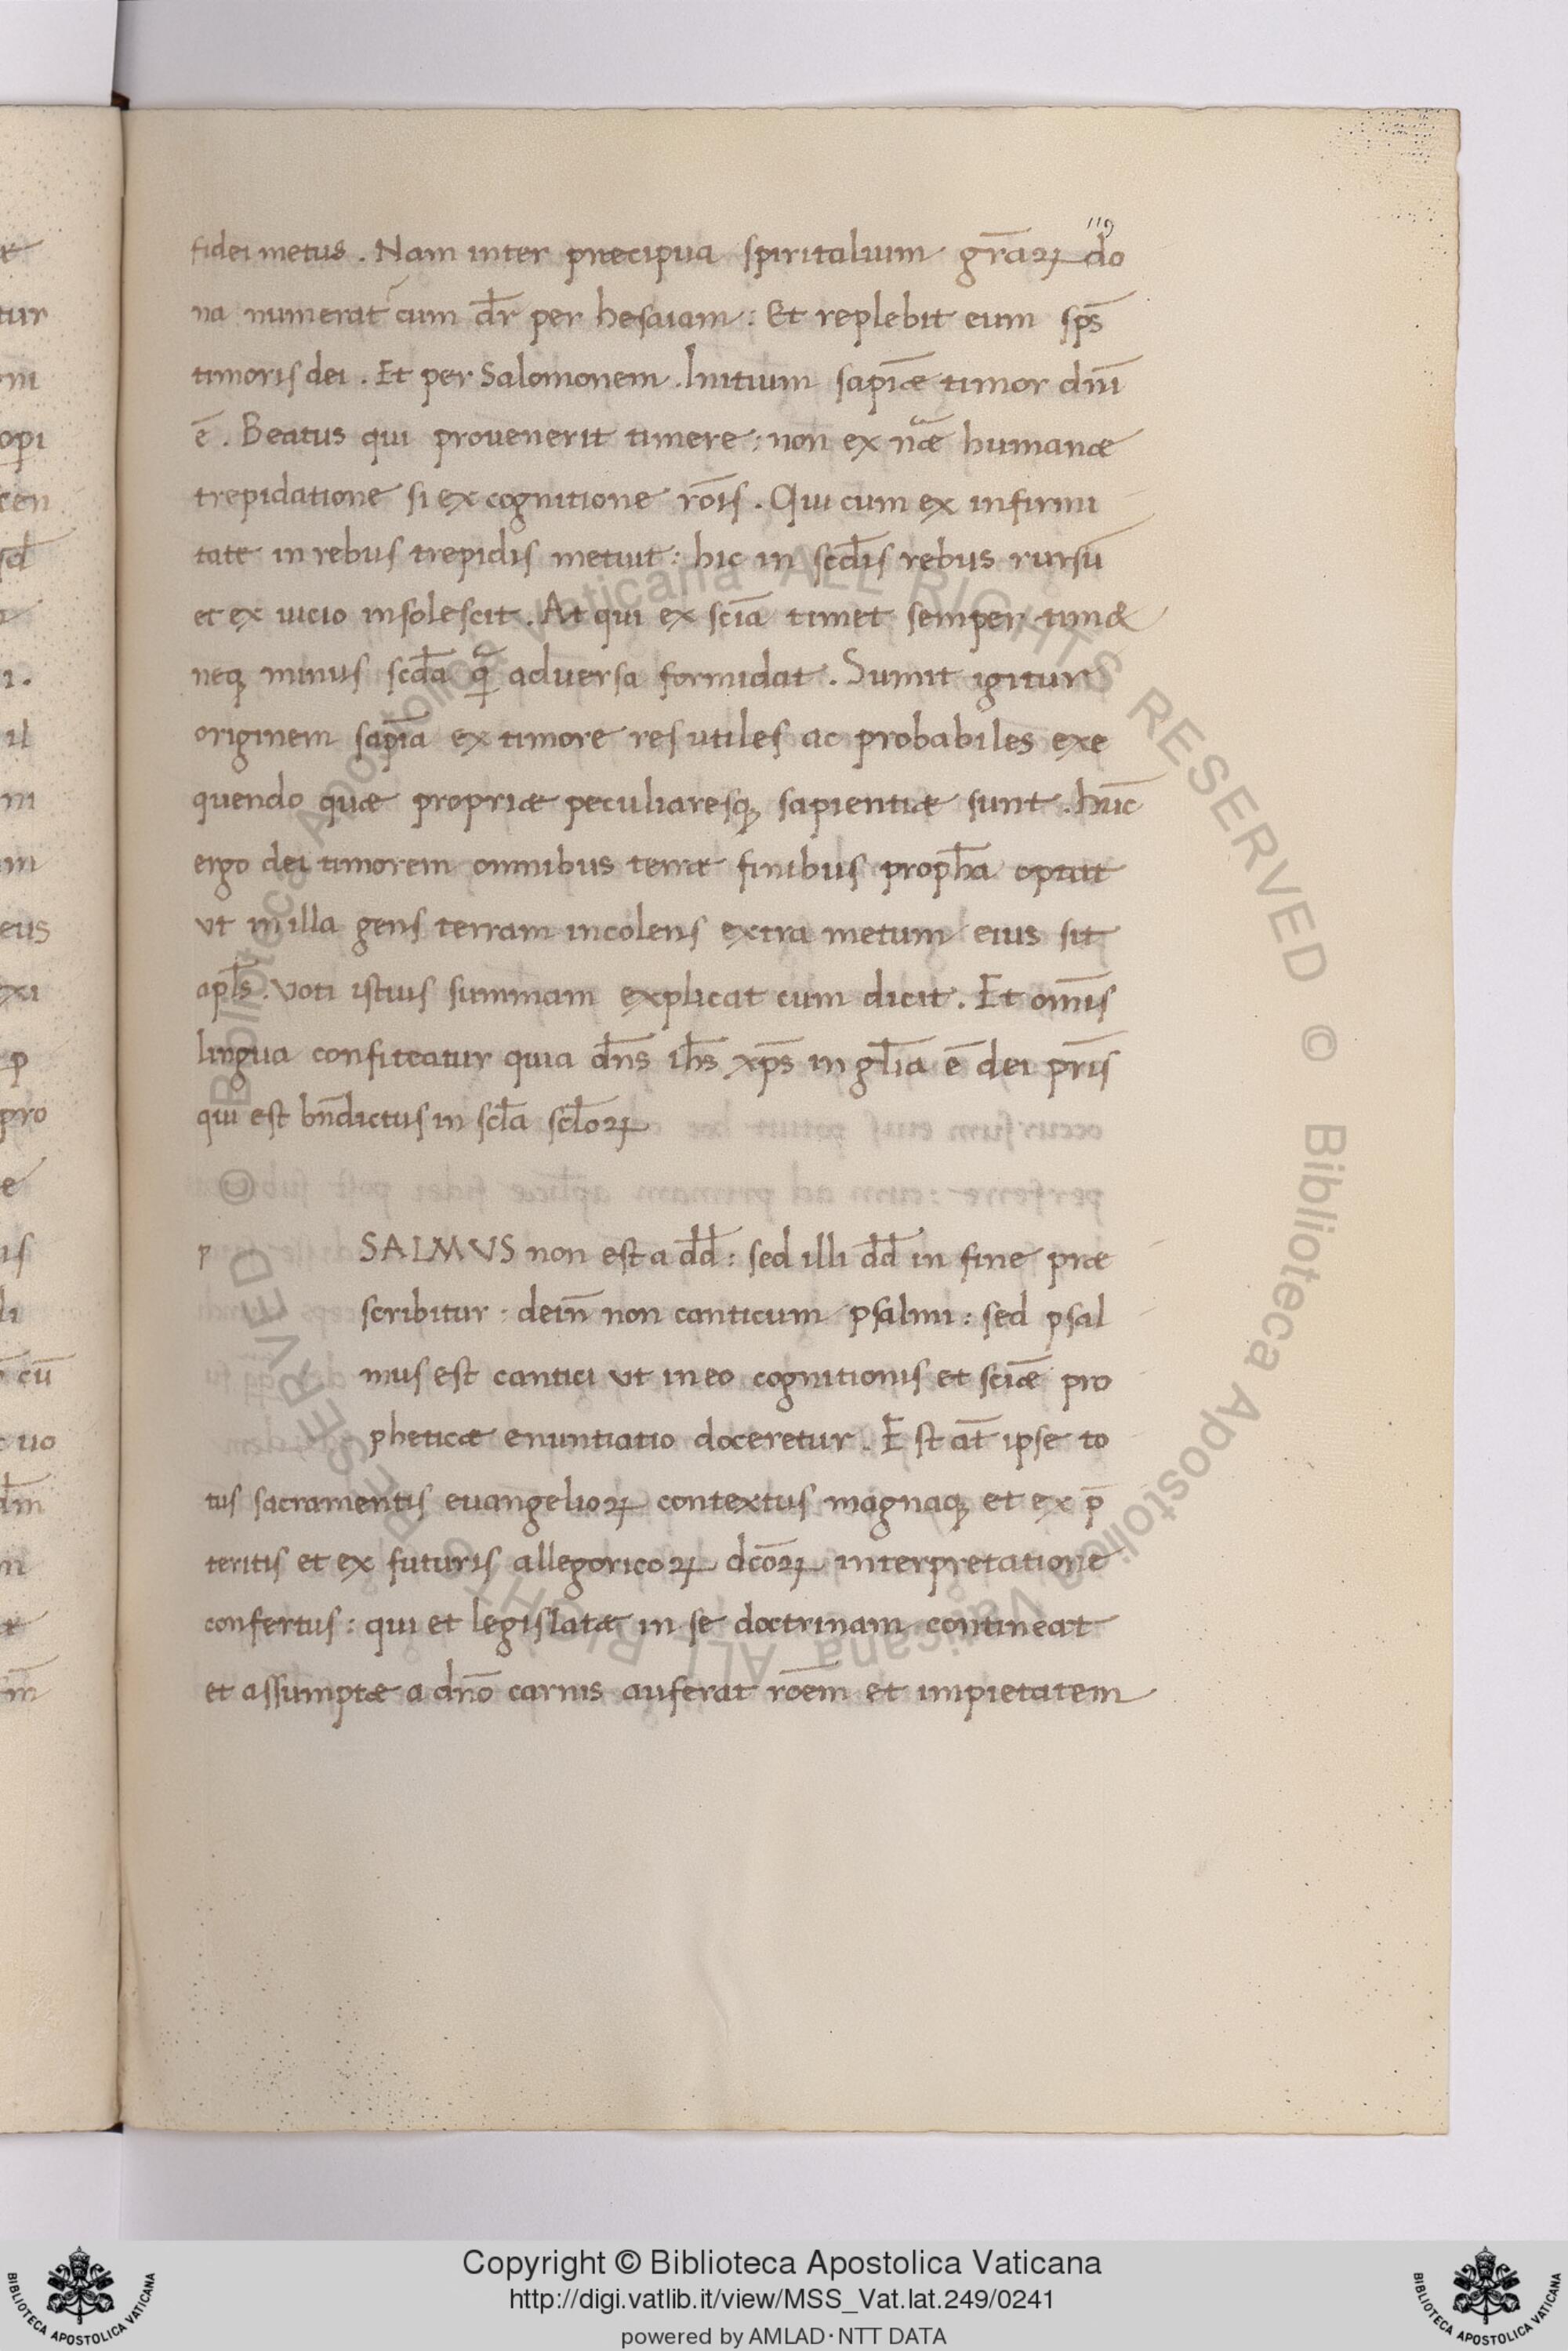 119
fidei metus . Nam inter præcipua spiritalium gr̄aꝝ do
na numerat᷑ cum dr̄ per hesaiam : Et replebit eum sp̄s
timoris dei . Et per Salomonem . Initium sapīæ timor dn̄i
ē . Beatus qui prouenerit timere : non ex nᵃ̄æ humanæ
trepidatione si ex cognitione rōis . Qui cum ex infirmi
tate in rebus trepidis metuit : hic in scd̄is rebus rursū
et ex uicio insolescit . At qui ex scīa timet semper tim&
neqꝫ minus scd̄a qᵃ̄ aduersa formidat . Sumit igitur
originem sapīa ex timore res utiles ac probabiles exe
quendo quæ propriæ peculiaresqꝫ sapientiæ sunt . hūc
ergo dei timorem omnibus terræ finibus proph̄a optat
ut in illa gens terram incolens extra metum eius sit
apl̄s . Voti istius summam explicat cum dicit . Et om̄is
lingua confiteatur quia dn̄s ih̄s xp̄s in gl̄ia ē dei pr̄is
qui est bn̄dictus in scl̄a scl̄oꝝ
p SALMVS non est a dd̄ : sed illi dd̄ in fine præ
scribitur : dein̄ non canticum psalmi : sed psal
mus est cantici ut in eo cognitionis et scīæ pro
pheticæ enuntiatio doceretur . Est āt ipse to
tus sacramentis euangelioꝝ contextus magnaqꝫ et ex p̄
teritis et ex futuris allegoricoꝝ dcōꝝ interpretatione
confertus : qui et legislatæ in se doctrinam contineat
et assumptæ a dn̄o carnis auferat rōem et impietatem
Biblioteca Apostolica Vaticana ALL RIGHTS RESERVED ©
Biblioteca Apostolica Vaticana ALL RIGHTS RESERVED ©
Copyright © Biblioteca Apostolica Vaticana
http://digi.vatlib.it/view/MSS_Vat.lat.249/0241
powered by AMLAD·NTT DATA
BIBLIOTECA APOSTOLICA VATICANA
BIBLIOTECA APOSTOLICA VATICANA